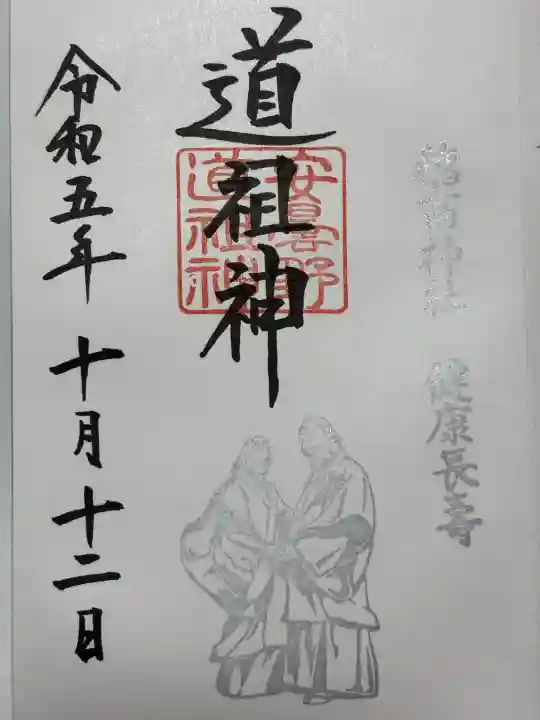 穂高神社 健康長壽
道祖神
安曇野
道祖神
令和五年 十月十二日